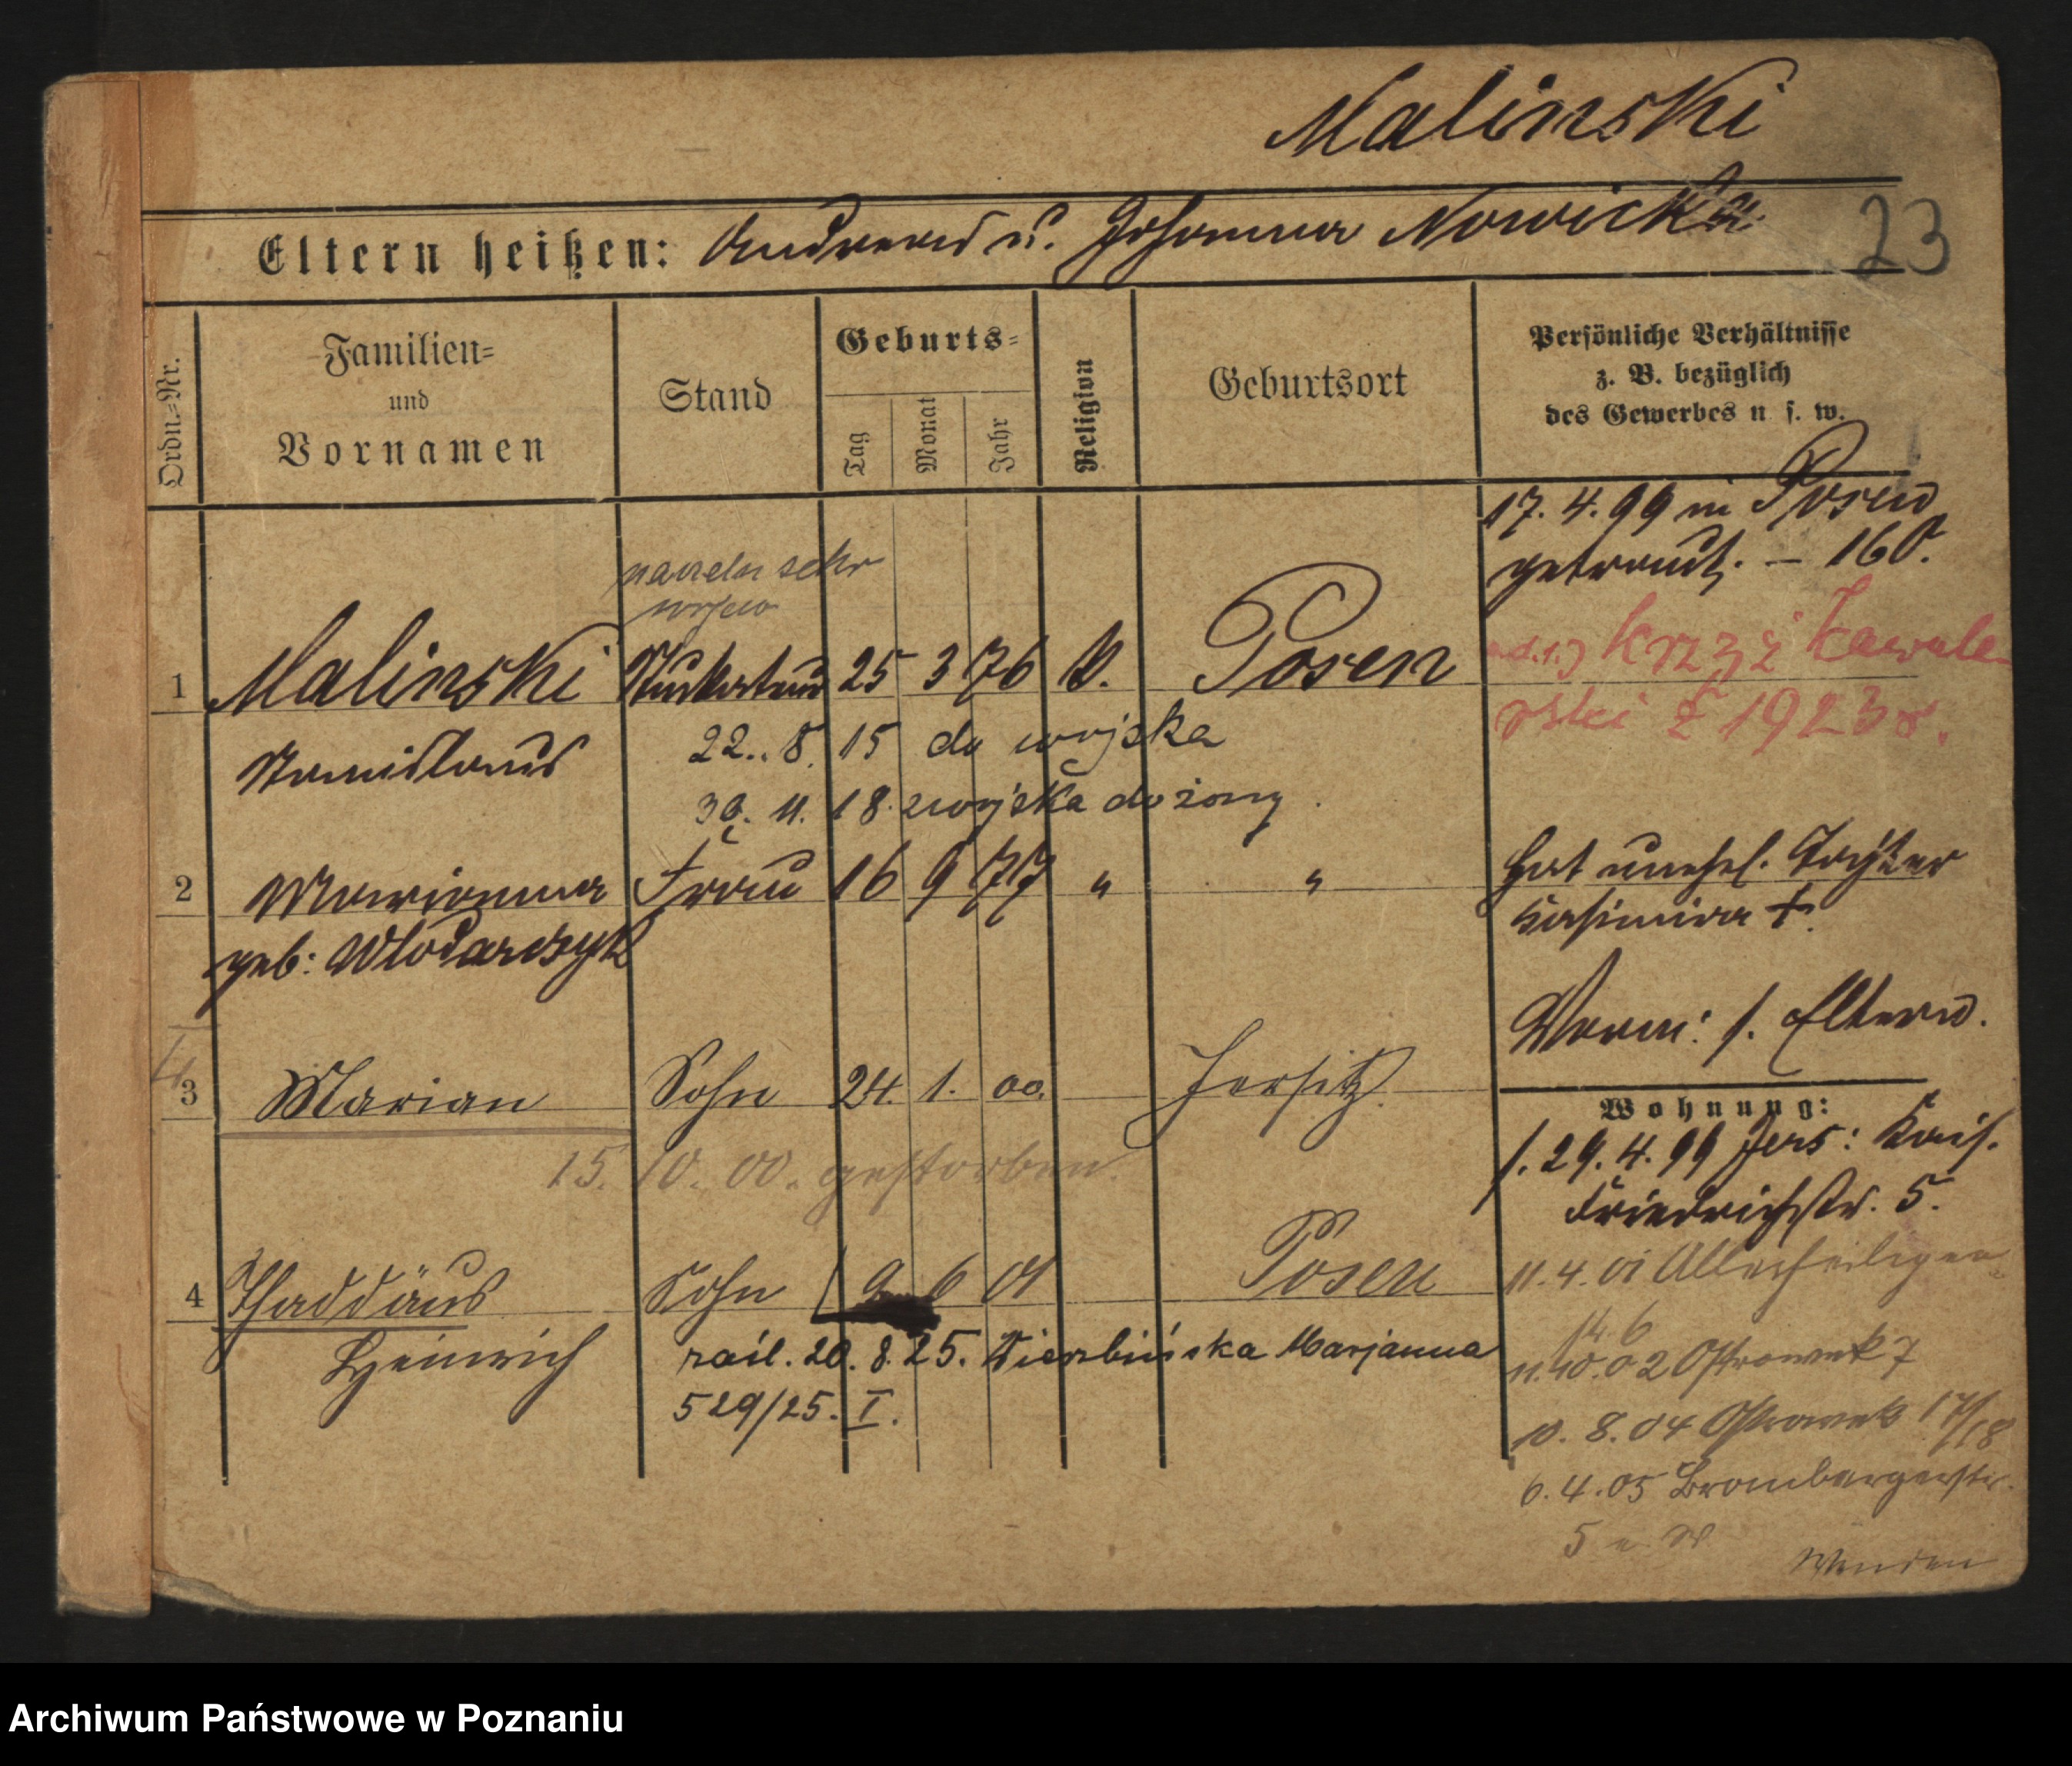 Malinski
Eltern heißen: Andreas u. Johanna Nowicka.
23
Ordn.-Nr.
Familien-
und
Vornamen
Stand
Geburts-
Tag
Monat
Jahr
Religion
Geburtsort
Persönliche Verhältnisse
z. B. bezüglich
des Gewerbes u s. w.
17. 4. 99 in Posen
getraut. – 160.
1 Malinski 25 3 76 k. Posen
Krzyż Kawale-
rski 1923 r.
Stanislaus
22. 8. 15 do wojska
30. 11. 18. z wojska do żony.
2 Marianna Frau 16 9 77 " "
geb: Wlodarczyk
Hat unehel. Tochter
Kasimira +.
Vorm: s. Eltern.
3 Marian Sohn 24. 1. 00. Jersitz.
15. 10. 00. gestorben.
Wohnung:
s. 29. 4. 99 Jers: Kais.
Friedrichstr. 5.
4 Thaddäus Sohn 9 6 01 Posen
Heinrich
11. 4. 01 Allerheiligen
14. 6
20. 8. 25. Wierbińska Marjanna
529/25. I.
11. 10. 02 Ostrowek 7
10. 8. 04 Ostrowek 17/18
6. 4. 05 Brombergerstr.
5
Wenden
Archiwum Państwowe w Poznaniu